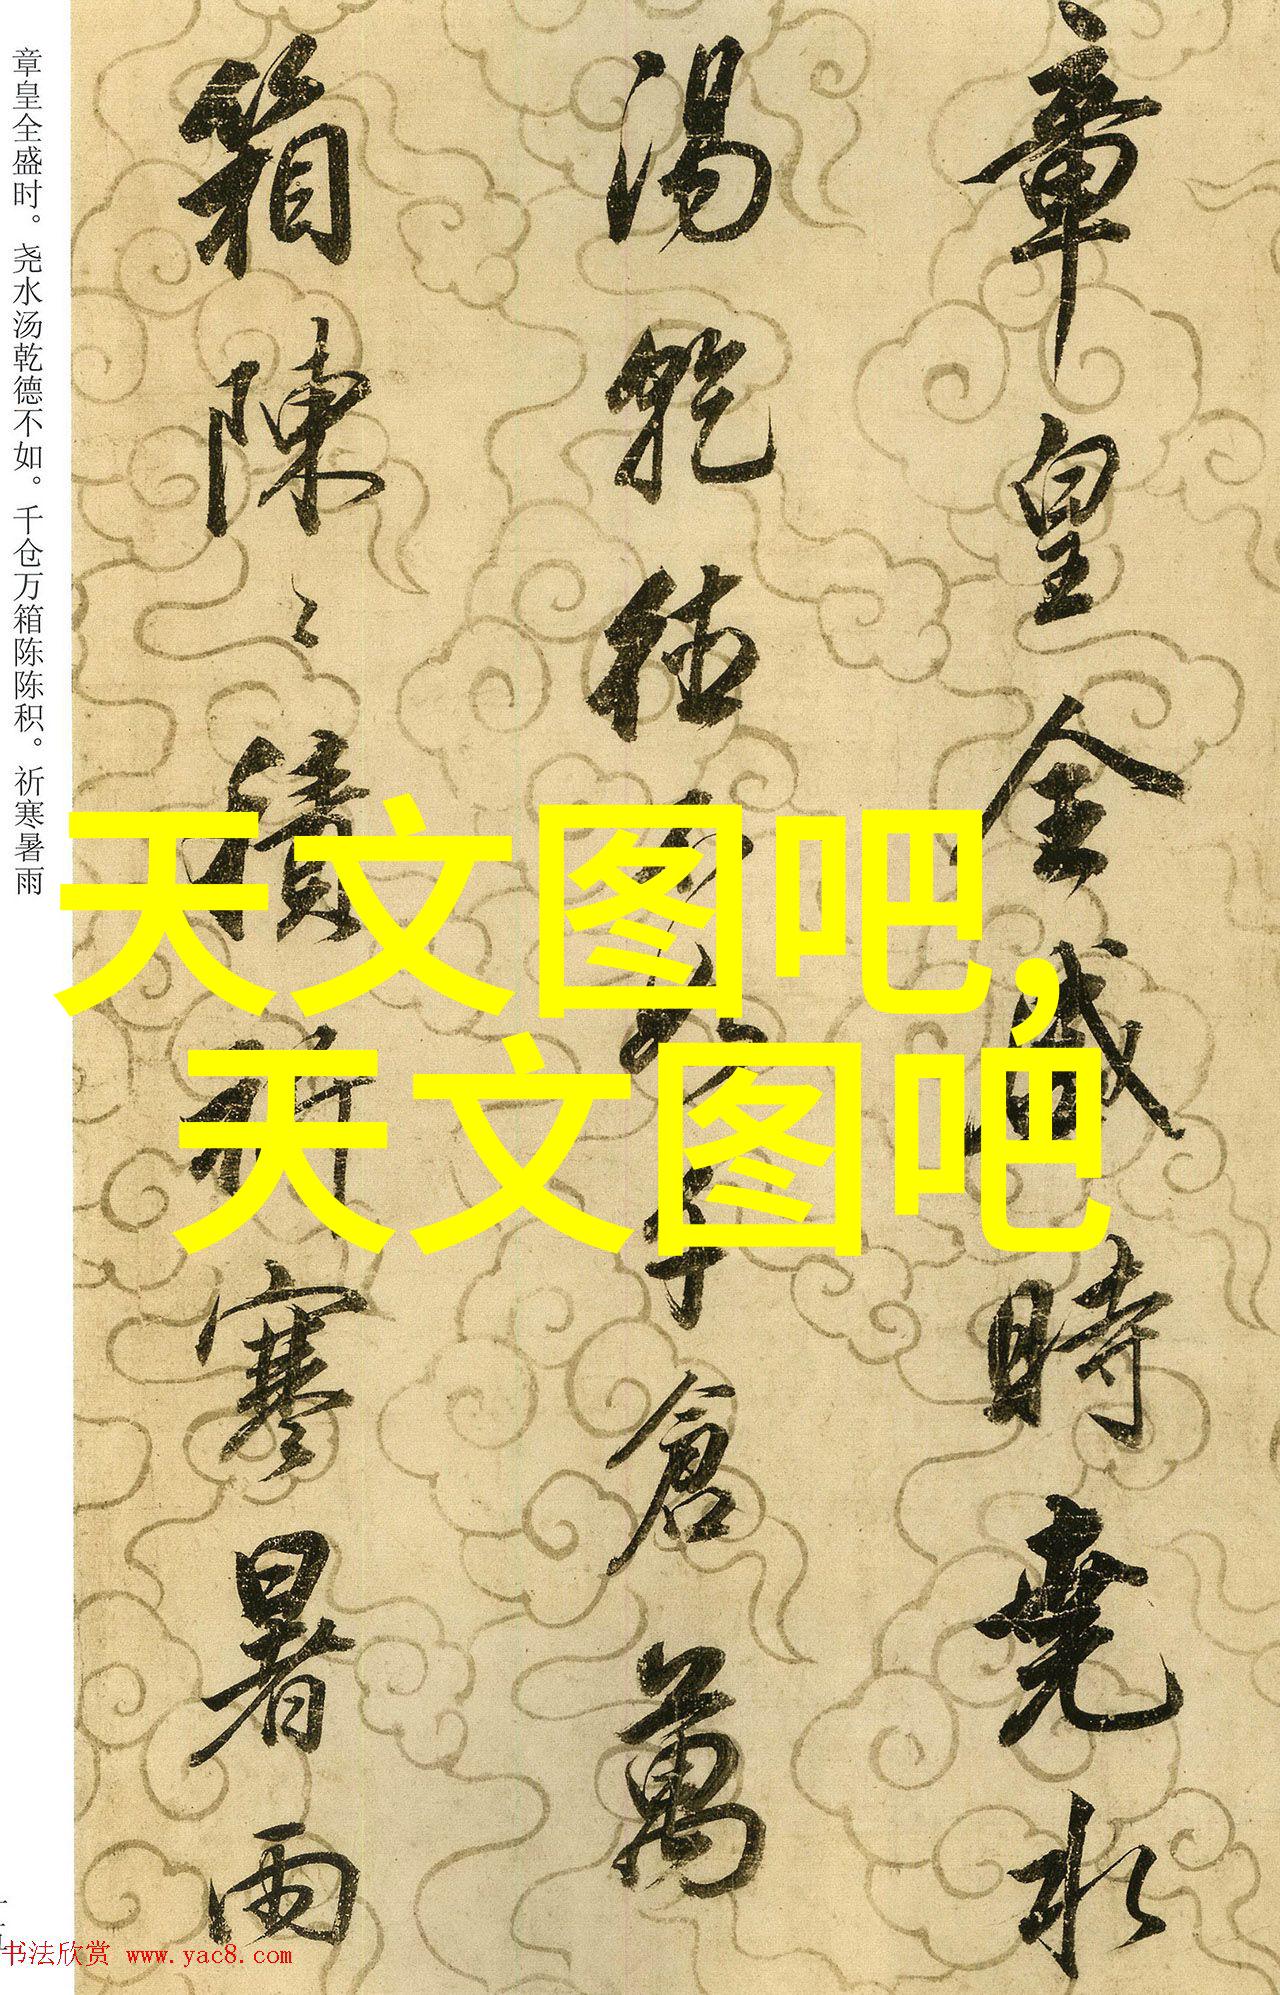 章皇全盛時堯水
湯乾德不如千倉萬
箱陳〻積祈寒暑雨
章皇全盛时。尧水汤乾德不如。千仓万箱陈陈积。祈寒暑雨
天文图吧,
天文图吧
书法欣赏 www.yac8.com